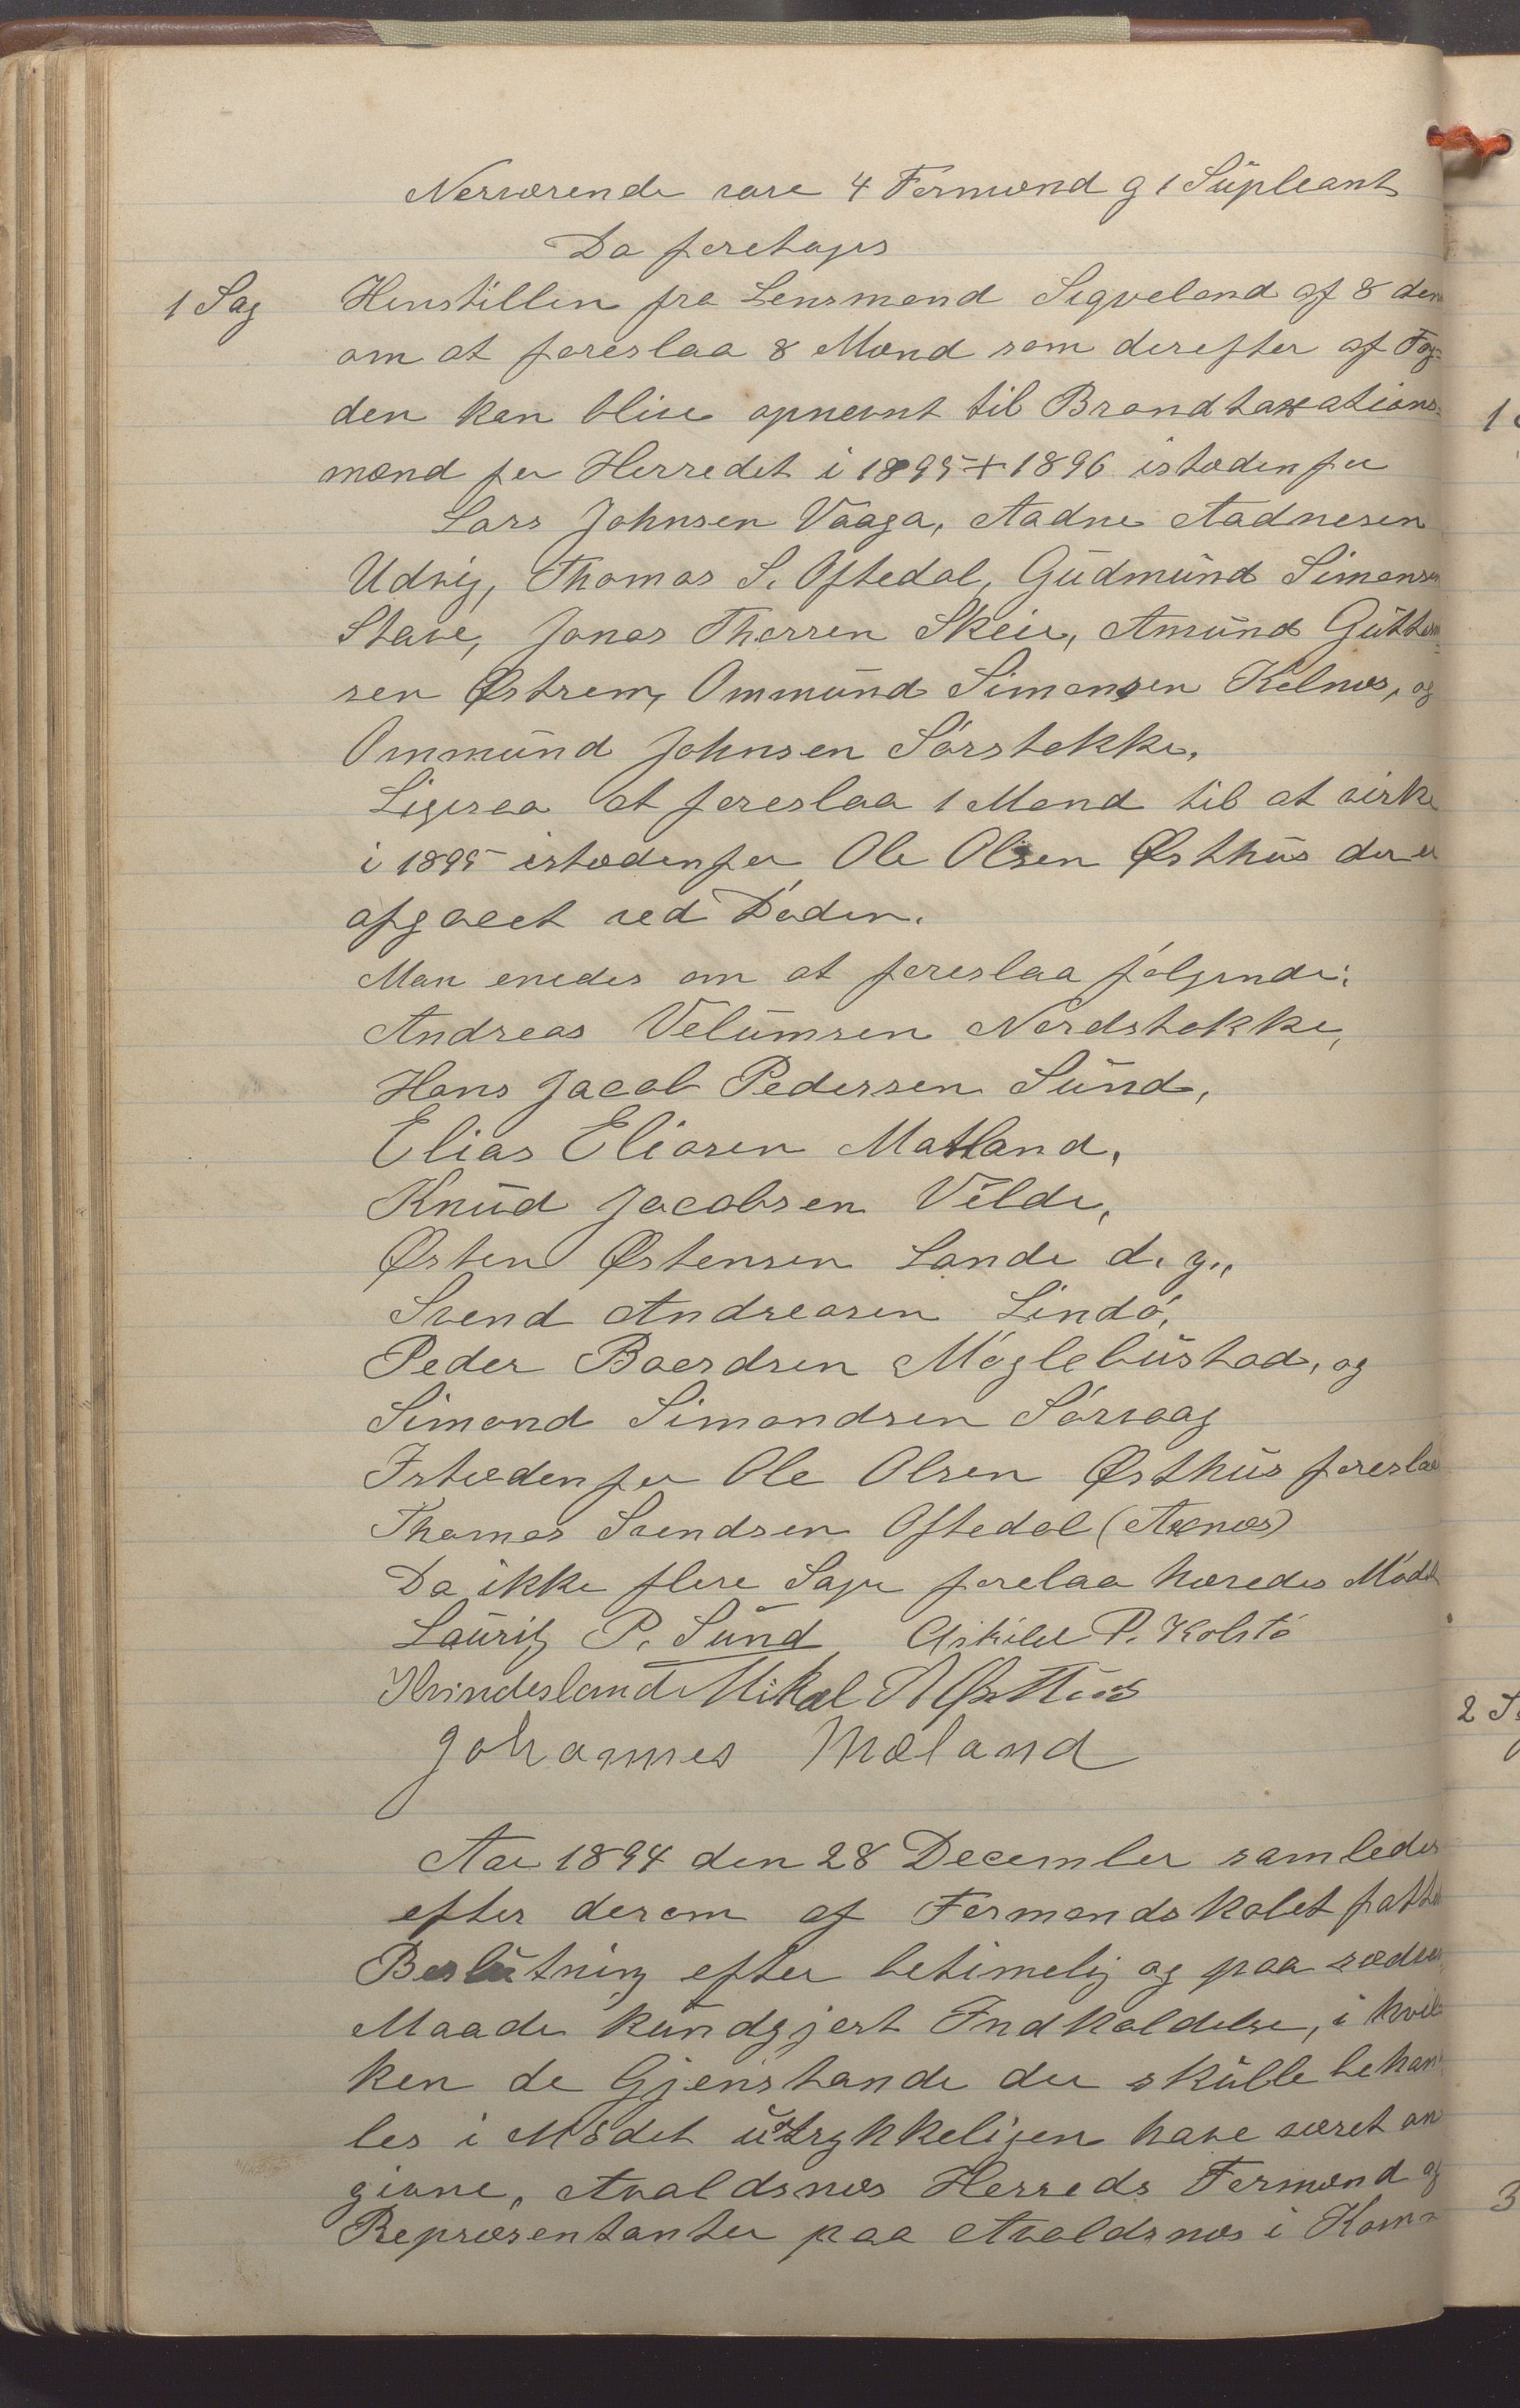 Nerværende vare 4 Formænd g 1 Süpleant
Da foretages
1 Sag Henstillen fra Lensmand Sigveland af 8 den
om at foreslaa 8 Mænd som derefter af Fog-
den kan blive opnevnt til Brandtaxations-
mænd for Herredet i 1895 + 1896 istædenfor
Lars Johnsen Vaaga, Aadne Aadnesen
Udvig, Thomas S. Oftedal, Güdmünd Simonsen
Stave, Jonas Thorsen Skeie, Amünd Gütterm-
sen Østrem, Ommünd Simonsen Kolnes, og
Ommünd Johnsen Sørstokke.
Ligesaa at foreslaa 1 Mand til at virke
i 1895 istædenfor Ole Olsen Østhüs der er
afgaaet ved Døden.
Man enedes om at foreslaa følgende:
Andreas Velümsen Nordstokke,
Hans Jacob Pedersen Sünd,
Elias Eliasen Matland,
Knüd Jacobsen Velde,
Østen Østensen Lande d. y.,
Svend Andreasen Lindø,
Peder Baardsen Møglebüstad, og
Simond Simondsen Sørvaag
Istædenfor Ole Olsen Østhüs foreslaaes
Thomas Svendsen Oftedal
Da ikke flere Sager forelaa hævedes Mødet
Lauritz P. Sünd Askild P. Kolstø
Kvindesland Mikal A Østhus
Johannes Mæland
Aar 1894 den 28 December samledes
efter derom af Formandskabet fattet
Beslutning efter betimelig og paa sædvan
Maade kündgjort Indkaldelse, i hvil
ken de Gjenstande der skülle behan
les i Mødet üdtrykkeligen have været an
givne, Avaldsnes Herreds Formænd og
Repræsentanter paa Avaldsnes i Kom-
1
2 S
3